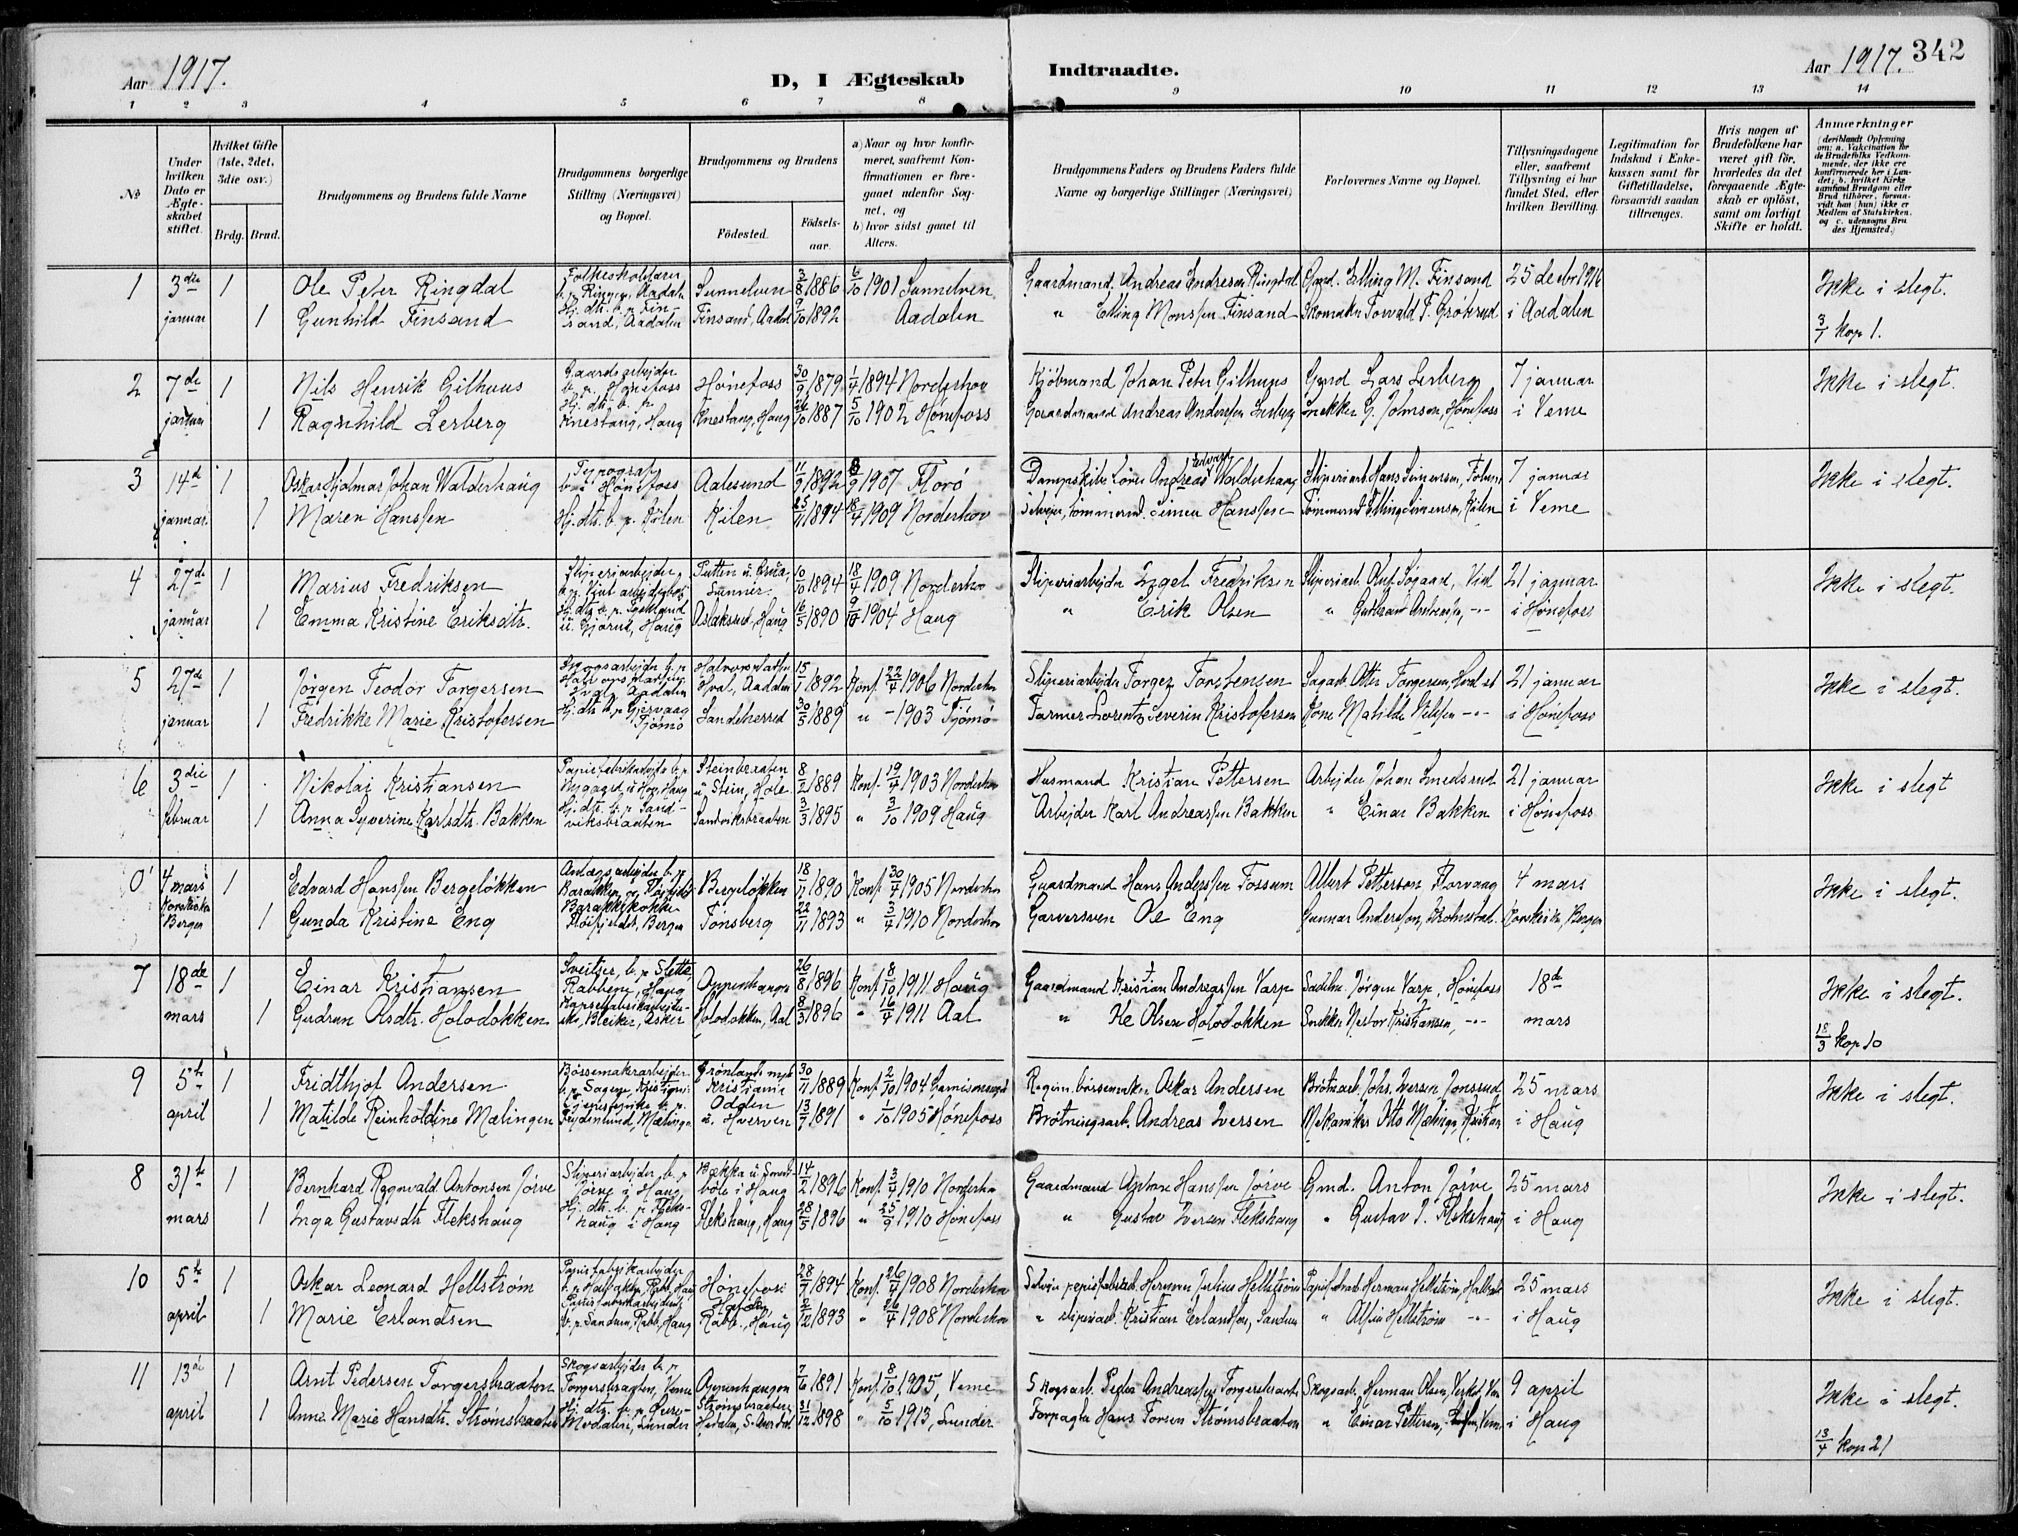 Aar 1917.
D, I Ægteskab Indtraadte.
Aar 1917. 342
1 2 3 4 5 6 7 8 9 10 11 12 13 14
No
Under hvilken Dato er Ægteskabet stiftet.
Hvilket Gifte (1ste, 2det, 3die osv.)
Brdg. Brud.
Brudgommens og Brudens fulde Navne
Brudgommens borgerlige Stilling (Næringsvei) og Bopæl.
Brudgommens og Brudens
Fødested. Fødselsaar.
a) Naar og hvor konfirmeret, saafremt Konfirmationen er foregaaet udenfor Sognet, og
b) hvor sidst gaaet til Alters.
Brudgommens Faders og Brudens Faders fulde Navne og borgerlige Stillinger (Næringsvei)
Forlovernes Navne og Bopæl.
Tillysningsdagene eller, saafremt Tillysning ei har fundet Sted, efter hvilken Bevilling.
Legitimation for Indskud i Enkekassen samt for Giftetilladelse, forsaavidt saadan tiltrænges.
Hvis nogen af Brudefolkene har været gift før, hvorledes da det foregaaende Ægteskab er opløst, samt om lovligt Skifte er holdt.
Anmærkninger
(deriblandt Oplysning om: a. Vakcination for de Brudefolks Vedkommende, der ikke ere konfirmerede her i Landet; b. hvilket Kirkesamfund Brudgom eller Brud tilhører, forsaavidt han (hun) ikke er Medlem af Statskirken, og c. udensogns Brudes Hjemsted.)
1 3die 1 Ole Peter Ringdal Sunnelven 3/8 1886 6/10 1901 Sunnelven Gaardmand Andreas Endresen Ringdal Gaard. Elling M. Finsand 25 decbr 1916 Ikke i slegt.
januar 1 Gunhild Finsand Finsand, Aadal 9/10 1892 Aadalen " Elling Monssen Finsand Skomaker Torvald T. Grøterud i Aadalen
3/1 kop 1.
2 7de 1 Nils Henrik Gilhuus Gaardsarbejder b. p. Hønefoss Hønefoss 30/9 1879 1/4 1894 Norderhov Kjøbmand Johan Peter Gilhuus Gmd Lars Lerberg 7 januar Ikke i slegt.
januar 1 Ragnhild Lerberg Hj. dtr. b. p. Knestang, Haug Knestang, Haug 26/10 1887 5/10 1902 Hønefoss Gaardmand Andreas Anderssen Lerberg Snekker G. Johnsen, Hønefoss i Veme
3 14d 1 Oskar Hjalmar Johan Walderhaug Typograf b. p. Hønefoss Aalesund 11/9 1892 8/9 1907 Florø Dampskibsfører Andreas Edvard Walderhaug Sliperiarb. Hans Simensen, 7 januar Ikke i slegt.
januar 1 Maren Hanssen Hj. dtr. b. p. Kilen Kilen 25/11 1894 18/4 1909 Norderhov Selveier, tømmerm. Simen Hanssen Tømmerm. Elling Simensen, Kilen i Veme
4 27de 1 Marius Fredriksen 10/10 1894 18/4 1909 Norderhov Sliperiarbejder Engel Fredriksen Sliperiarb. Olaf 21 januar Ikke i slegt.
januar 1 Emma Kristine Eriksdtr. Aslaksrud, Haug 16/5 1890 9/10 1904 Haug " Erik Olsen " i Hønefoss
5 27de 1 Jørgen Teodor Torgersen Hval, Aadalen 15/1 1892 Konf. 22/4 1906 Norderhov Sliperiarbejder Torger Torstensen Sagarb. Otter Torgersen, Hval st 21 januar Ikke i slegt.
januar 1 Fredrikke Marie Kristofersen Hj. dtr. b. p. Gjervaag Tjømø Sandeherred 30/5 1889 " - 1903 Tjømø Farmer Lorentz Severin Kristofersen Kone Matilde Nilssen -"- i Hønefoss
6 3die 1 Nikolai Kristiansen Steinbraaten u. Stein, Hole 8/2 1889 Konf. 19/4 1903 Norderhov Husmand Kristian Pettersen Arbejder Johan Smedsrud 21 januar Ikke i slegt
februar 1 Anna Syverine Karlsdtr. Bakken Hj. dtr. b. p. Sandviksbraaten Sandviksbraaten 3/3 1895 " 3/10 1909 Haug Arbejder Karl Andreassen Bakken " Einar Bakken i Hønefoss
0 4 mars 1 Edvard Hanssen Bergeløkken Bergeløkken 18/11 1890 Konf 30/4 1905 Norderhov Gaardmand Hans Anderssen Fossum Albert Petterson Florvaag 4 mars Ikke i slegt.
Korskirken Bergen 1 Gunda Kristine Eng Barakkekokke Fløifjeldet, Bergen Tønsberg 22/11 1893 " 3/4 1910 Norderhov Garversven Ole Eng Gunnar Anderssen, Korskirk. Bergen
7 18de 1 Einar Kristiansen Sveitser, b. p. Slette Rabbene, Haug Oppenhaugen 26/8 1896 Konf 8/10 1911 Haug Gaardmand Kristian Andreassen Varp Sadelm. Jørgen Varp, Hønefoss 18d Ikke i slegt.
mars 1 Gudrun Olsdtr. Holodokken Bleiker, Asker Holodokken, Aal 8/3 1896 " 16/4 1911 Aal " Ole Olsen Holodokken Snekker Nestor Kristiansen, -"- mars
18/3 kop 10
9 5te 1 Fridthjof Andersen 30/11 1889 Konf 2/10 1904 Garnisonsmgh Regim. børsemaker Oskar Andersen Brøtnarb. Johs. Iversen Jonsrud 25 mars Ikke i slegt.
april 1 Matilde Reinholdine Mælingen Frydenlund, Mælingen Odden u. Hverven 13/7 1891 " 1/10 1905 Hønefoss Brøtningsarb. Andreas Iversen Mekaniker Otto Mælingen, i Haug
8 31te 1 Bernhard Ragnvald Antonsen Jørve Sliperiarbejder, b. p Jørve i Haug 14/2 1896 Konf. 3/4 1910 Norderhov Gaardmand Anton Hanssen Jørve Gmd. Anton Jørve 25 mars Ikke i slegt.
mars 1 Inga Gustavsdtr Flekshaug Hj. dtr. b. p. Flekshaug i Haug Flekshaug, Haug 28/5 1896 " 25/9 1910 Hønefoss " Gustav Iversen Flekshaug " Gustav I. Flekshaug i Haug
10 5te 1 Oskar Leonard Hellstrøm Hønefoss 28/7 1894 Konf. 26/4 1908 Norderhov Selveier papirfabrikarb. Herman Julius Hellstrøm Papirfabrarb. Herman Hellstrøm, 25 mars Ikke i slegt.
april 1 Marie Erlandsen b. p. Sandum, Rabb., Haug Rabb., Haug 2/12 1893 " 26/4 1908 Norderhov " sliperiarb. Kristian Erlandsen, Sandum " Hellstrøm -"- i Haug
11 13de 1 Arnt Pedersen Torgersbraaten Skogsarbejder b. p. Torgersbraaten, Veme Oppenhaugen 7/6 1891 Konf. 8/10 1905, Veme Skogsarb. Peder Andreassen Torgersbraaten Skogsarb. Herman Olsen, 9 april Ikke i slegt.
april 1 Anne Marie Hansdtr. Strømsbraaten Strømsbraaten Hedalen, S. Aurdal 31/12 1898 " 5/10 1913, Lunder Forpagter Hans Torsen Strømsbraaten " Einar Pettersen, i Haug
13/4 kop 21